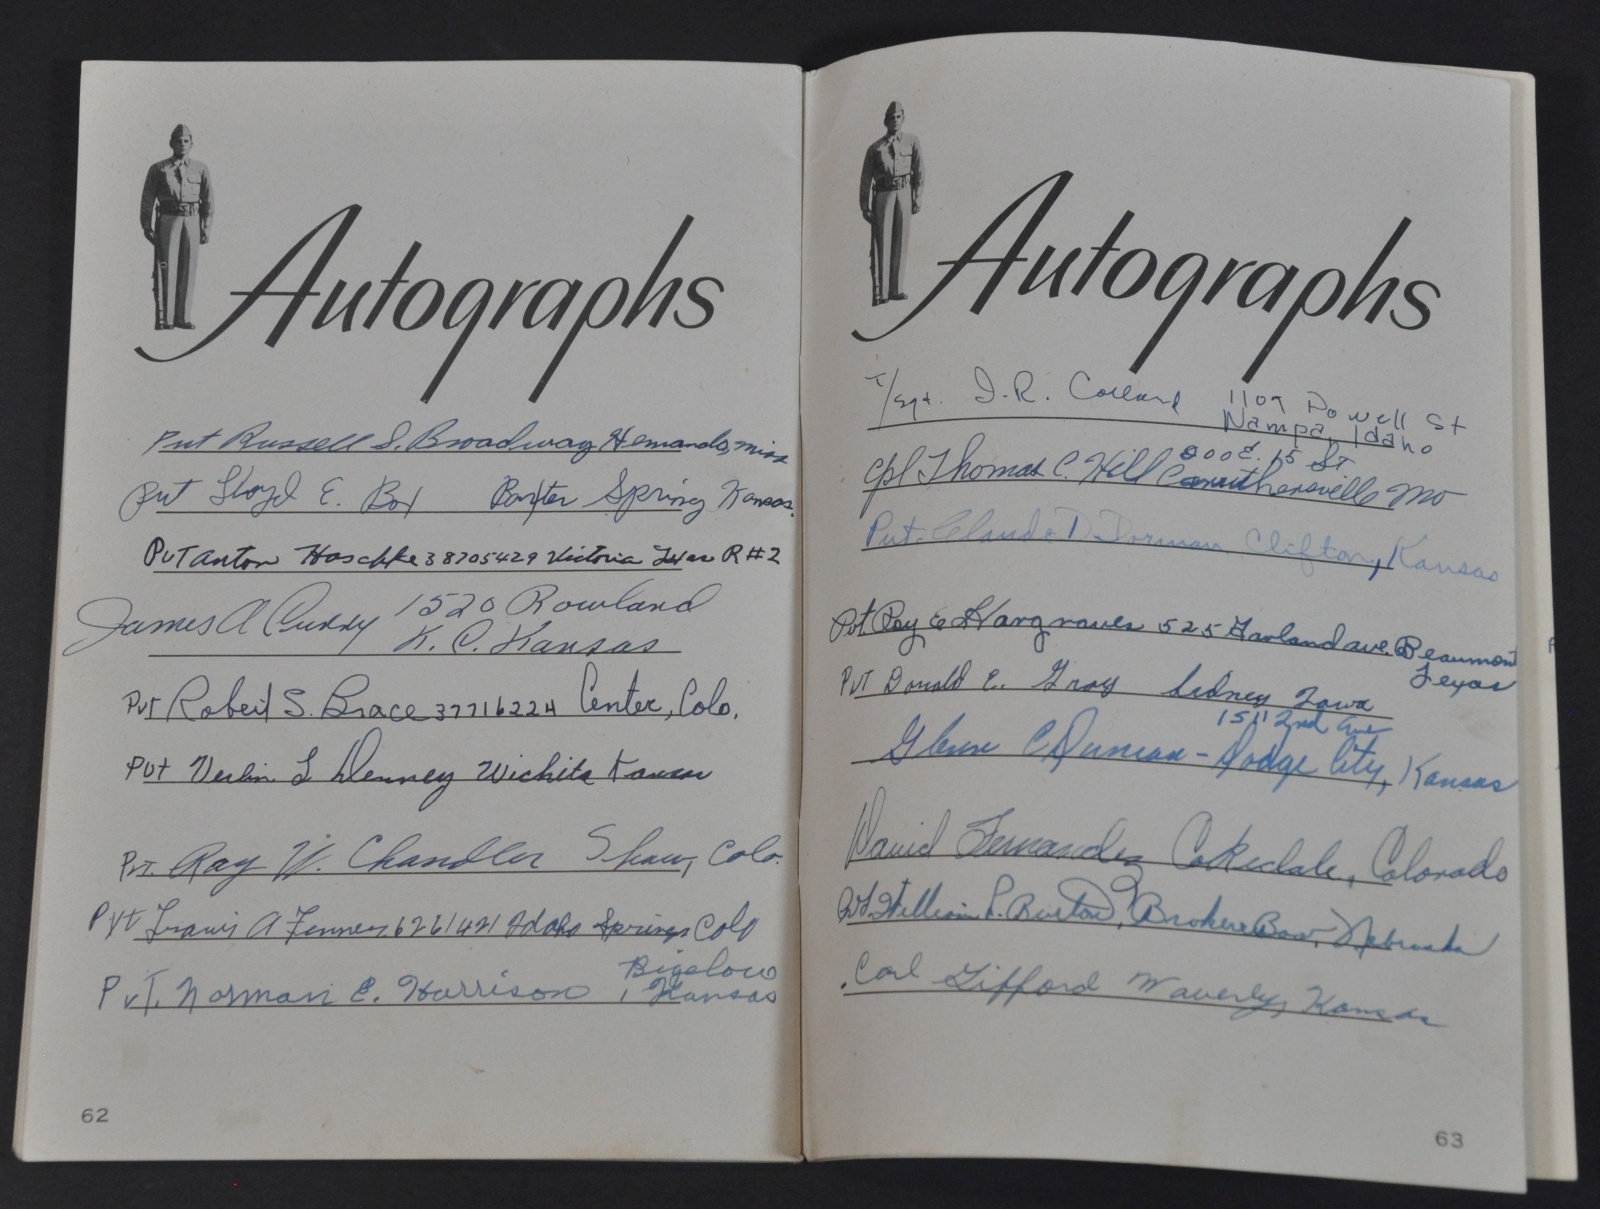 Autographs
Pvt Russell S. Broadway Hernando, Miss
Pvt Lloyd E. Box Baxter Spring Kansas.
Pvt Anton Haschke 38705429 Victoria Texas R#2
James A Curry 1520 Rowland
K. C. Kansas
Pvt Robert S. Brace 37716224 Center, Colo.
Pvt Verlin L Denney Wichita Kansas
Pvt. Ray W. Chandler Shaw, Colo.
Pvt Travis A 6261421 Idaho Springs Colo
Bigelow
PvT. Norman E. Harrison , Kansas
62
Autographs
T/Sgt. J.R. 1109 Powell St
Nampa, Idaho
800 E. 15 St
Cpl Thomas C. Hill Caruthersville Mo
Pvt. Claude D. Dorman Clifton, Kansas
Pvt Roy E Hargraves 525 Garland ave. Beaumont
Texas
PVT Donald E. Gray Sidney Iowa
1511 2nd Ave
Glenn C Duncan - Dodge City, Kansas
David Fernandez Cokedale, Colorado
Pvt. William L. Burton, Broken Bow, Nebraska
Carl Gifford Waverly, Kansas
63